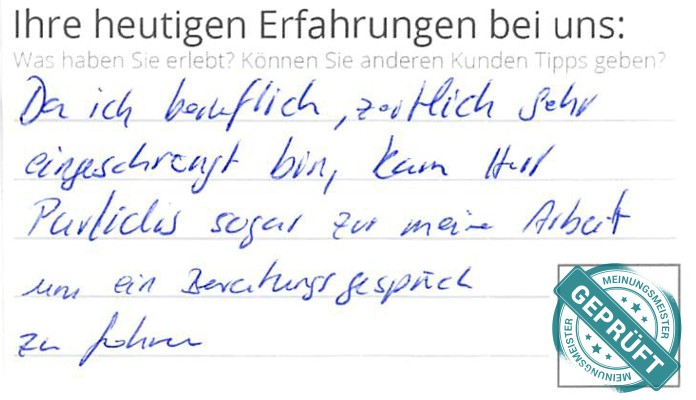 Ihre heutigen Erfahrungen bei uns:
Was haben Sie erlebt? Können Sie anderen Kunden Tipps geben?
Da ich beruflich, zeitlich sehr
eingeschrengt bin, kam Herr
sogar zur meine Arbeit
um ein Beratungsgespräch
zu führen
MEINUNGSMEISTER
GEPRÜFT
MEINUNGSMEISTER